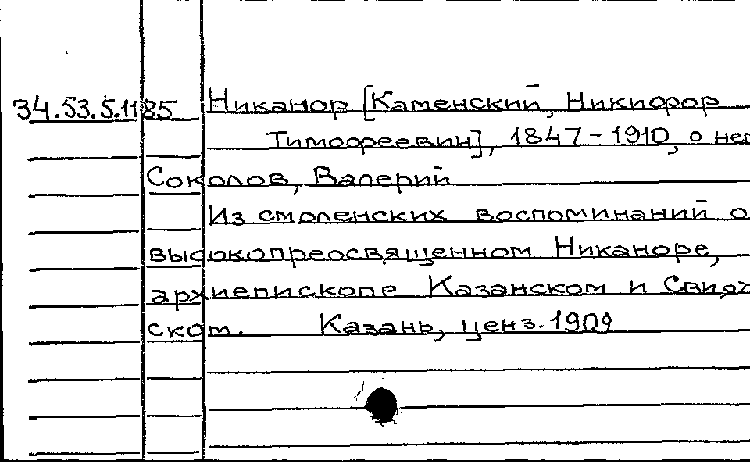 34.53.5.1185 Никанор [Каменский, Никифор
Тимофеевич], 1847-1910, о нем
Соколов, Валерий
Из смоленских воспоминаний о
высокопреосвященном Никаноре,
архиепископе Казанском и Свияж
ском. Казань, ценз. 1909